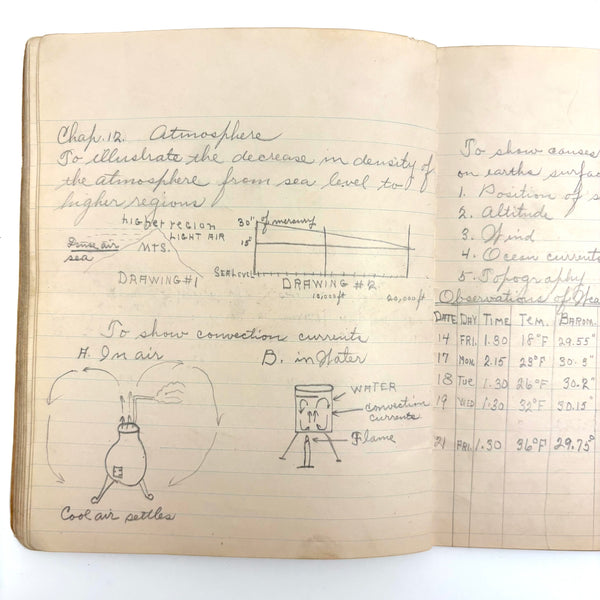 Chap. 12. Atmosphere
To illustrate the decrease in density of
the atmosphere from sea level to
higher regions
higher region
LIGHT AIR
Dense air
sea
MTS.
DRAWING #1
30" of mercury
15"
SEA LEVEL
DRAWING #2
10,000ft
20,000ft
To show convection currents
A. In air
B. in Water
WATER
convection
currents
Flame
Cool air settles
To show causes
on earths surfa
1. Position of s
2. Altitude
3. Wind
4. Ocean currents
5. Topography
Observations of Wea
DATE DAY TIME TEM. BAROM.
14 FRI. 1.30 18°F 29.55"
17 MON. 2.15 29°F 30.5"
18 TUE 1.30 26°F 30.2"
19 WED 1.30 32°F 30.15"
21 FRI. 1.30 36°F 29.75"